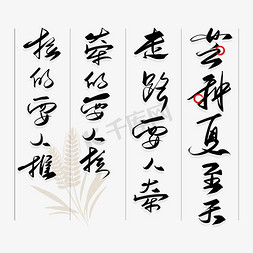 芒种夏至天
走路要人牵
牵的要人拉
拉的要人推
千库网